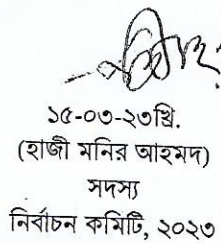 ১৫-০৩-২৩খ্রি.
(হাজী মনির আহমদ)
সদস্য
নির্বাচন কমিটি, ২০২৩